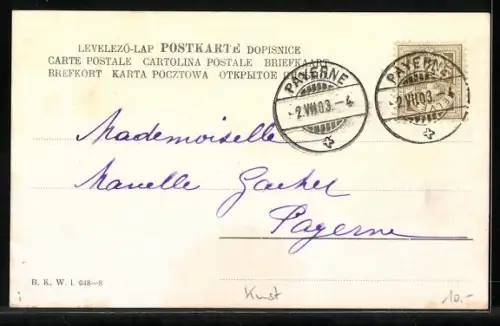 LEVELEZŐ-LAP POSTKARTE DOPISNICE
CARTE POSTALE CARTOLINA POSTALE BRIEFKAART
BREFKORT KARTA POCZTOWA ОТКРЫТОЕ
PAYERNE
2.VII.03.-4
PAYERNE
2.VII.03.-4
Mademoiselle
Payerne
B. K. W. I. 648-8
Kunst
10.-